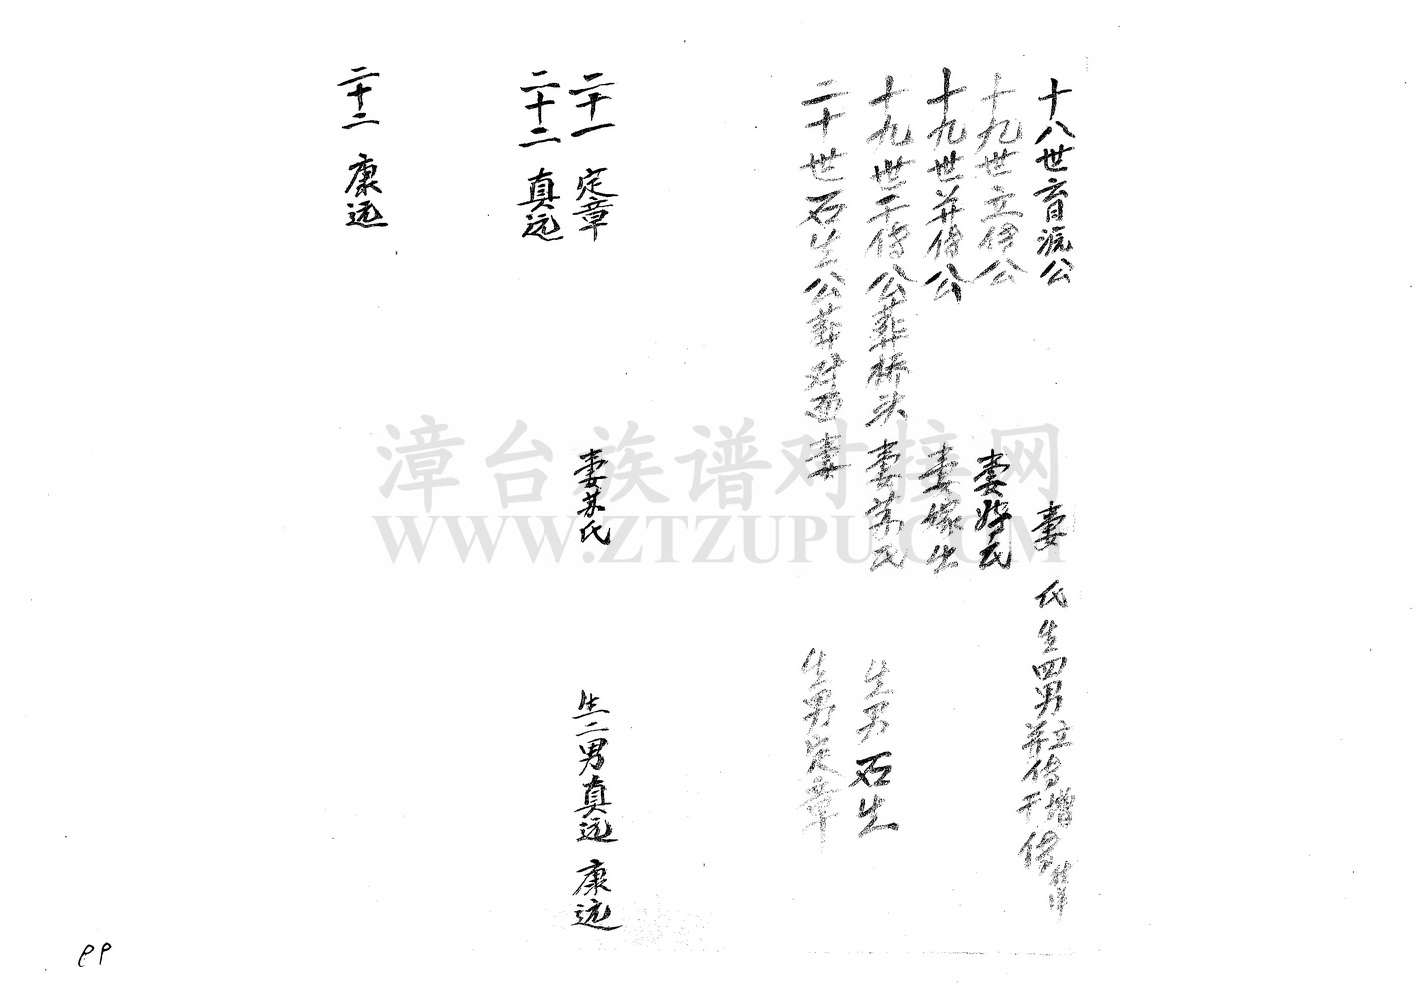 十八世育流公 妻 氏生四男立传增
十九世立传公 妻 氏
十九世并传公 妻嫁出
十九世千传公葬桥头妻苏氏 生男石生
二十世石生公葬对面妻 生男定章
二十一 定章 妻苏氏 生二男真远 康远
二十二 真远
二十二 康远
漳台族谱对接网
WWW.ZTZUPU.COM
99